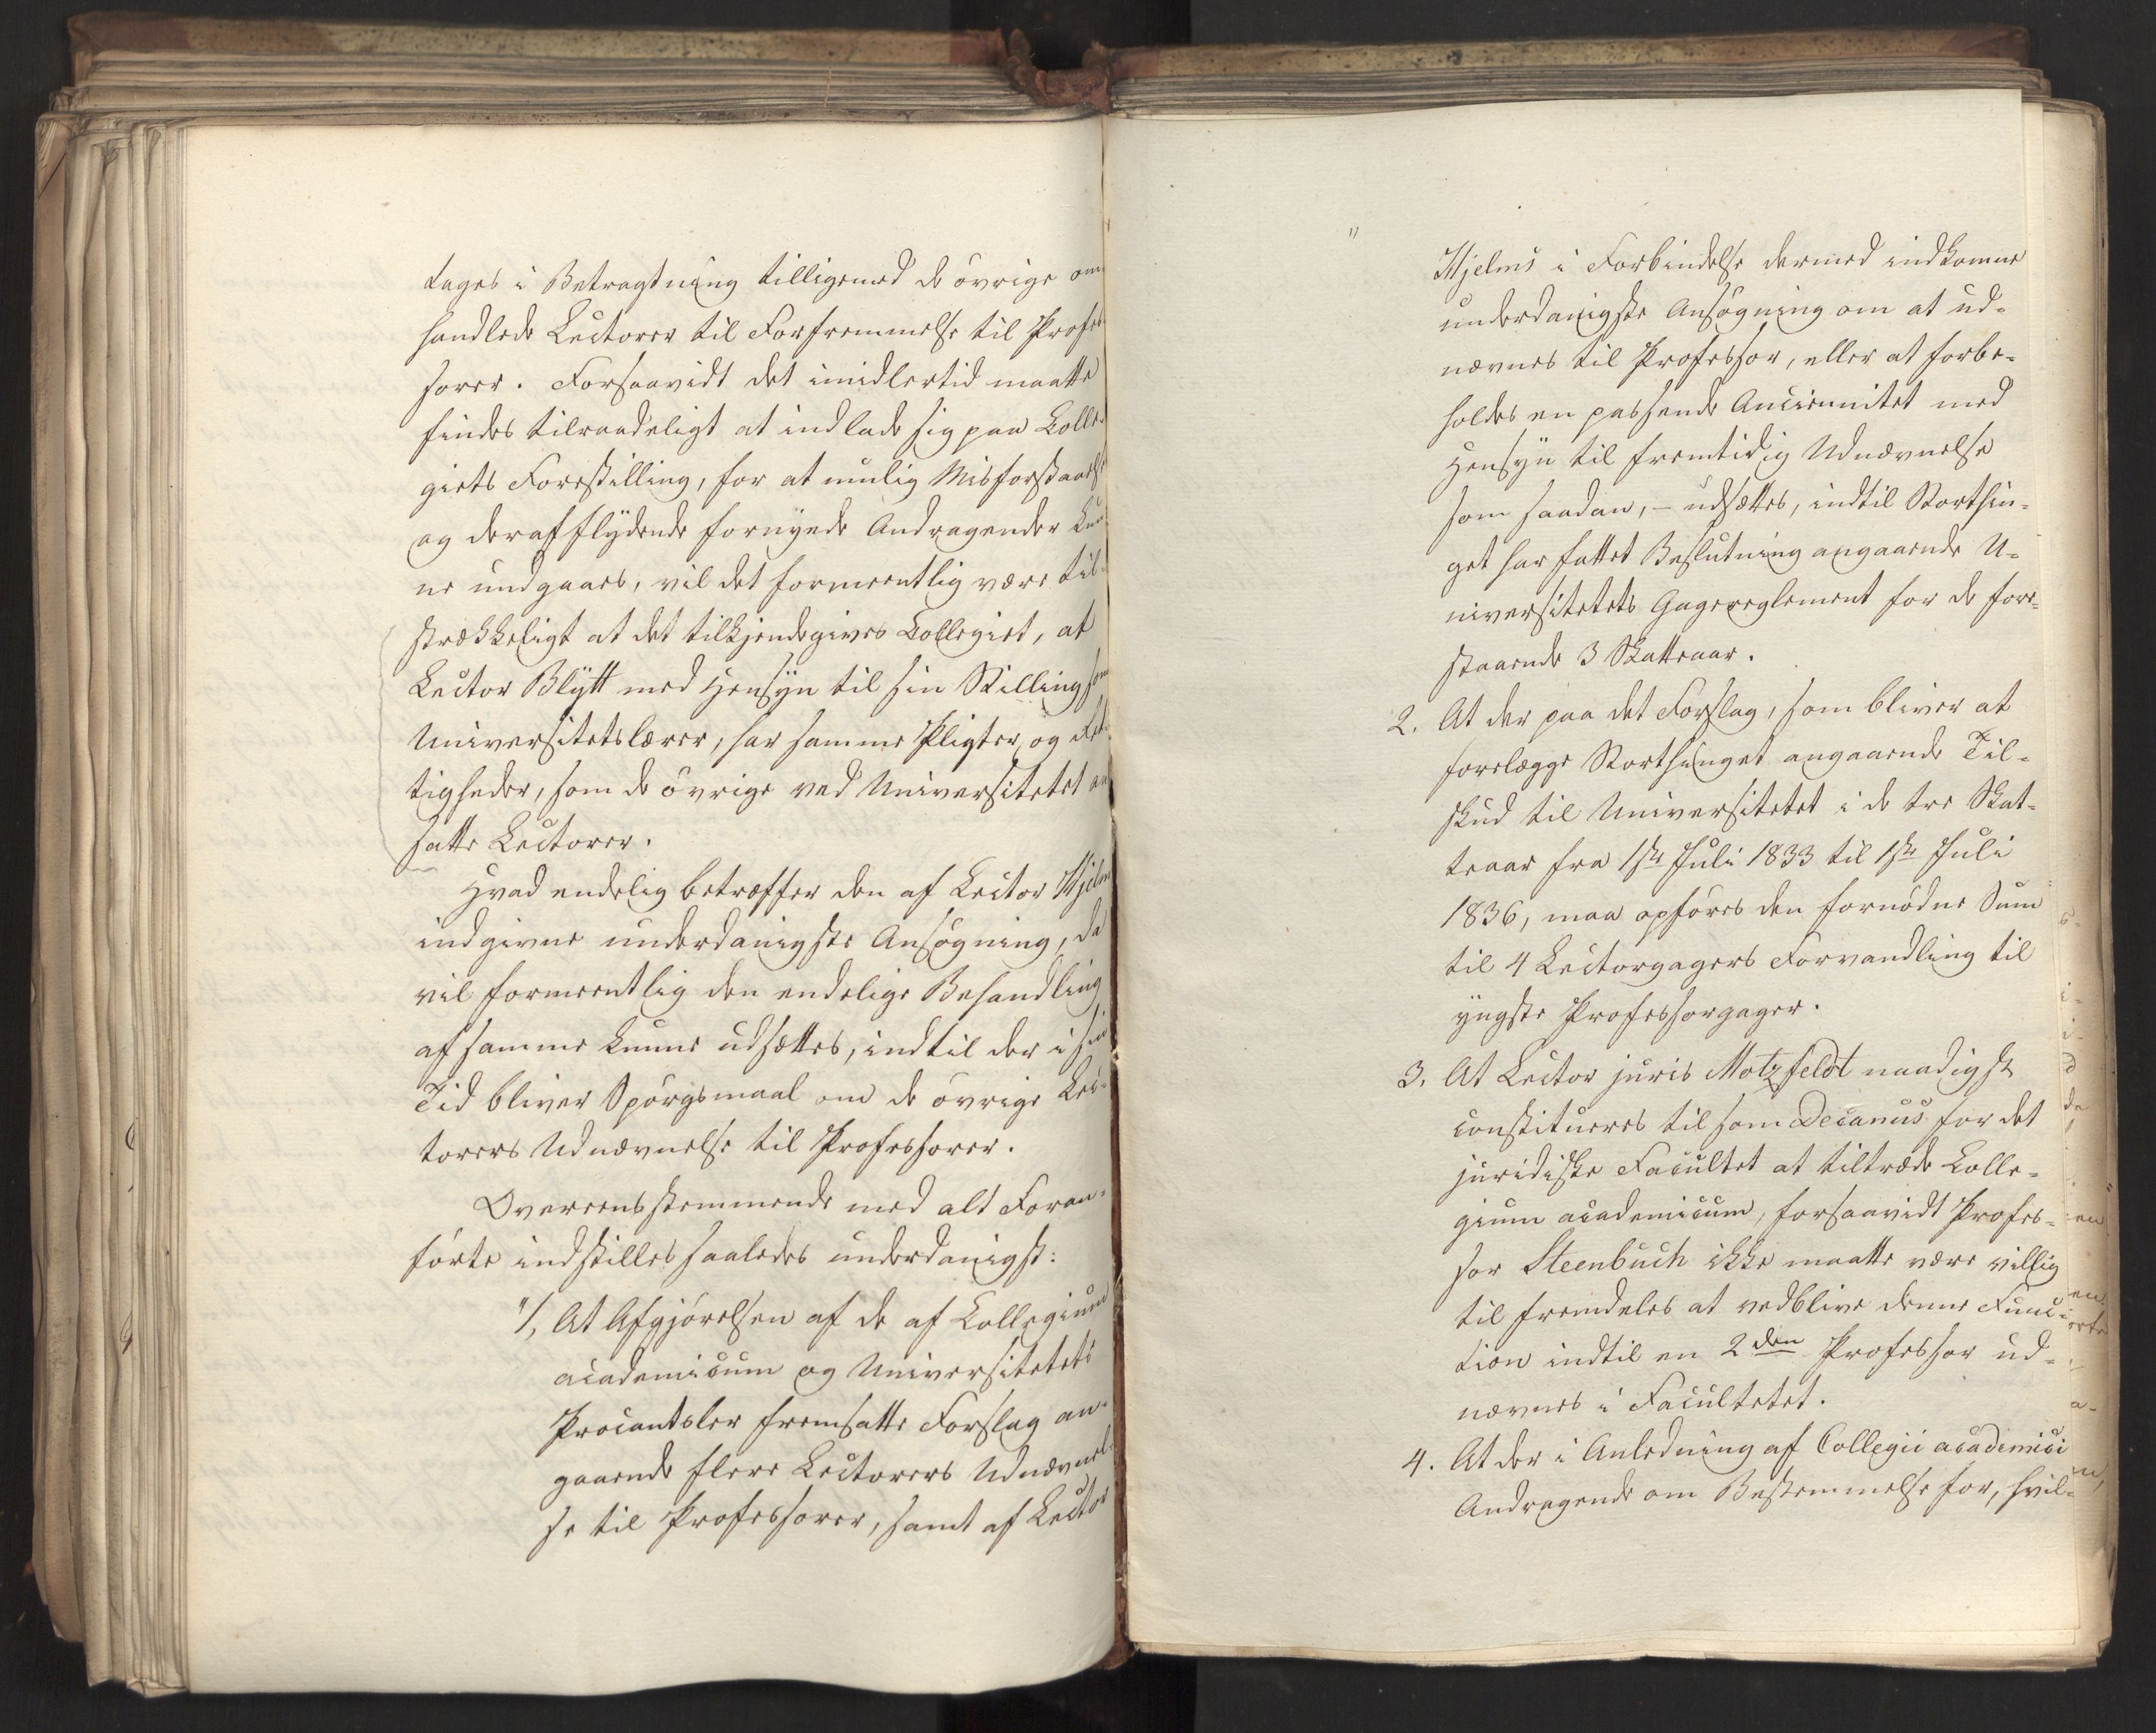 tages i Betragtning tilligemed de øvrige om
handlede Lectorer til Forfremmelse til Profes
sorer. Forsaavidt det imidlertid maatte
findes tilraadeligt at indlade sig paa Colle-
giets Forestilling, for at mulig Misforstaaelse
og deraf flydende fornyede Andragender kun
ne undgaaes, vil det formeentlig være til-
strækkeligt at det tilkjendegives Collegiet, at
Lector Blytt med Hensyn til sin Stilling som
Universitetslærer, har samme Pligter og Ret-
tigheder, som de øvrige ved Universitetet an
satte Lectorer.
Hvad endelig betræffer den af Lector Hjelm
indgivne underdanigste Ansøgning, da
vil formeentlig den endelige Behandling
af samme kunne udsættes, indtil der i sin
Tid bliver Spørgsmaal om de øvrige Lec-
torers Udnævnelse til Professorer.
Overeensstemmende med alt Foran-
førte indstilles saaledes underdanigst:
"1, At Afgjørelsen af de af Collegium
academicum og Universitetets
Procantsler fremsatte Forslag an-
gaaende flere Lectorers Udnævnel-
se til Professorer, samt af Lector
" Hjelms i Forbindelse dermed indkomne
underdanigste Ansøgning om at ud-
nævnes til Professor, eller at forbe-
holdes en passende Anciennitet med
Hensyn til fremtidig Udnævnelse
som saadan, – udsættes, indtil Storthin-
get har fattet Beslutning angaaende U-
niversitetets Gagereglement for de fore-
staaende 3 Skatteaar.
2. At der paa det Forslag, som bliver at
forelægge Storthinget angaaende Til-
skud til Universitetet i de tre Skat-
teaar fra 1ste Juli 1833 til 1ste Juli
1836, maa opføres den fornødne Sum
til 4 Lectorgagers Forvandling til
yngste Professorgager.
3. At Lector juris Motzfeldt naadigst
constitueres til som Decanus for det
juridiske Facultet at tiltræde Colle-
gium academicum, forsaavidt Profes-
sor Steenbuch ikke maatte være villig
til fremdeles at vedblive denne Func-
tion indtil en 2den Professor ud-
nævnes i Facultetet.
4. At der i Anledning af Collegii academici
Andragende om Bestemmelse for, hvil-